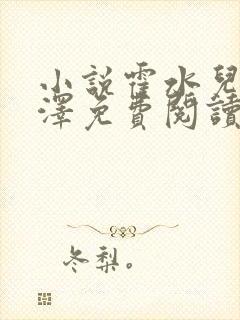 小說霍水兒
澤免費閱讀
冬梨。